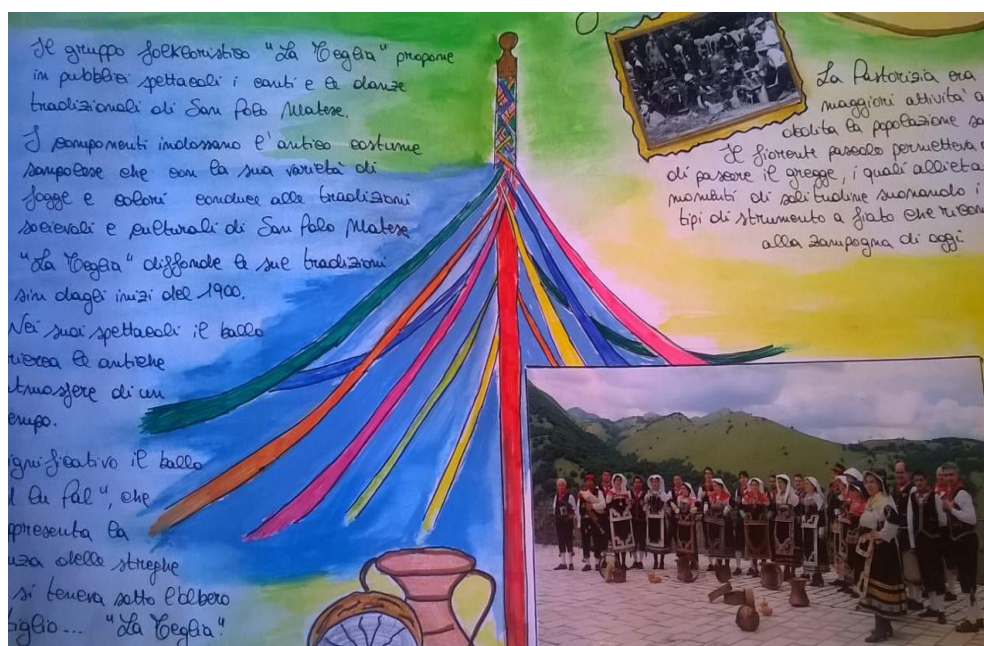 Il gruppo folkloristico "La Teglia" propone
in pubblici spettacoli i canti e le danze
tradizionali di San Polo Matese.
I componenti indossano l'antico costume
sampolese che con la sua varietà di
fogge e colori conduce alle tradizioni
socievali e culturali di San Polo Matese
"La Teglia" diffonde le sue tradizioni
sin dagli inizi del 1900.
Nei suoi spettacoli il ballo
ricrea le antiche
atmosfere di un
tempo.
ignificativo il ballo
"l lu pal", che
ppresenta la
nza delle streghe
si teneva sotto l'albero
tiglio... "La Teglia".
La Pastorizia era
maggiori attività a
abolita la popolazione sa
Il fiorente pascolo permetteva
di pascere il gregge, i quali allieta
momenti di solitudine suonando i
tipi di strumento a fiato che ricon
alla zampogna di oggi